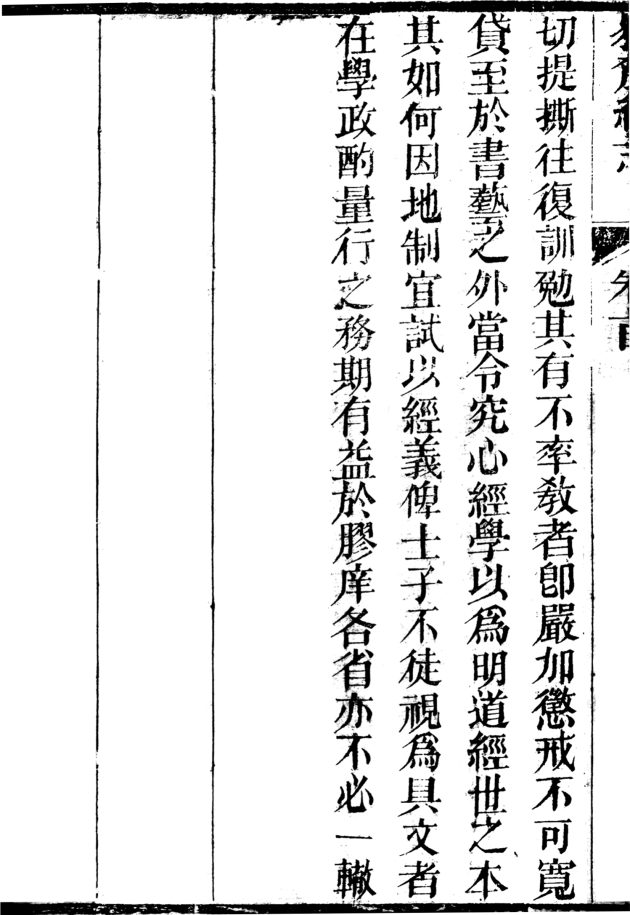 切提撕往復訓勉其有不率敎者卽嚴加懲戒不可寬
貸至於書藝之外當令究心經學以爲明道經世之本
其如何因地制宜試以經義俾士子不徒視爲具文者
在學政酌量行之務期有益於膠庠各省亦不必一轍